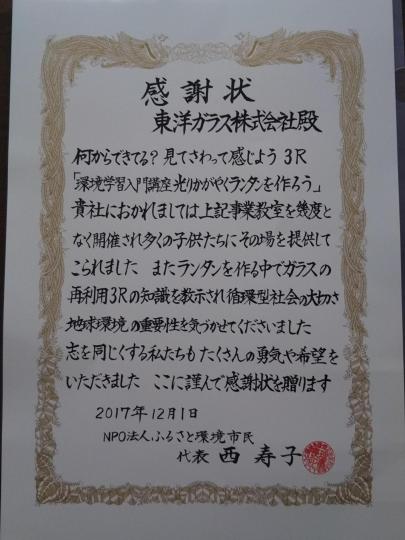 感謝状
東洋ガラス株式会社殿
何からできてる?見てさわって感じよう 3R
「環境学習入門講座光りかがやくランタンを作ろう」
貴社におかれましては上記事業教室を幾度と
なく開催され多くの子供たちにその場を提供して
こられました またランタンを作る中でガラスの
再利用3Rの知識を教示され循環型社会の大切さ
地球環境の重要性を気づかせてくださいました
志を同じくする私たちもたくさんの勇気や希望を
いただきました ここに謹んで感謝状を贈ります
2017年12月1日
NPO法人ふるさと環境市民
代表 西 寿子